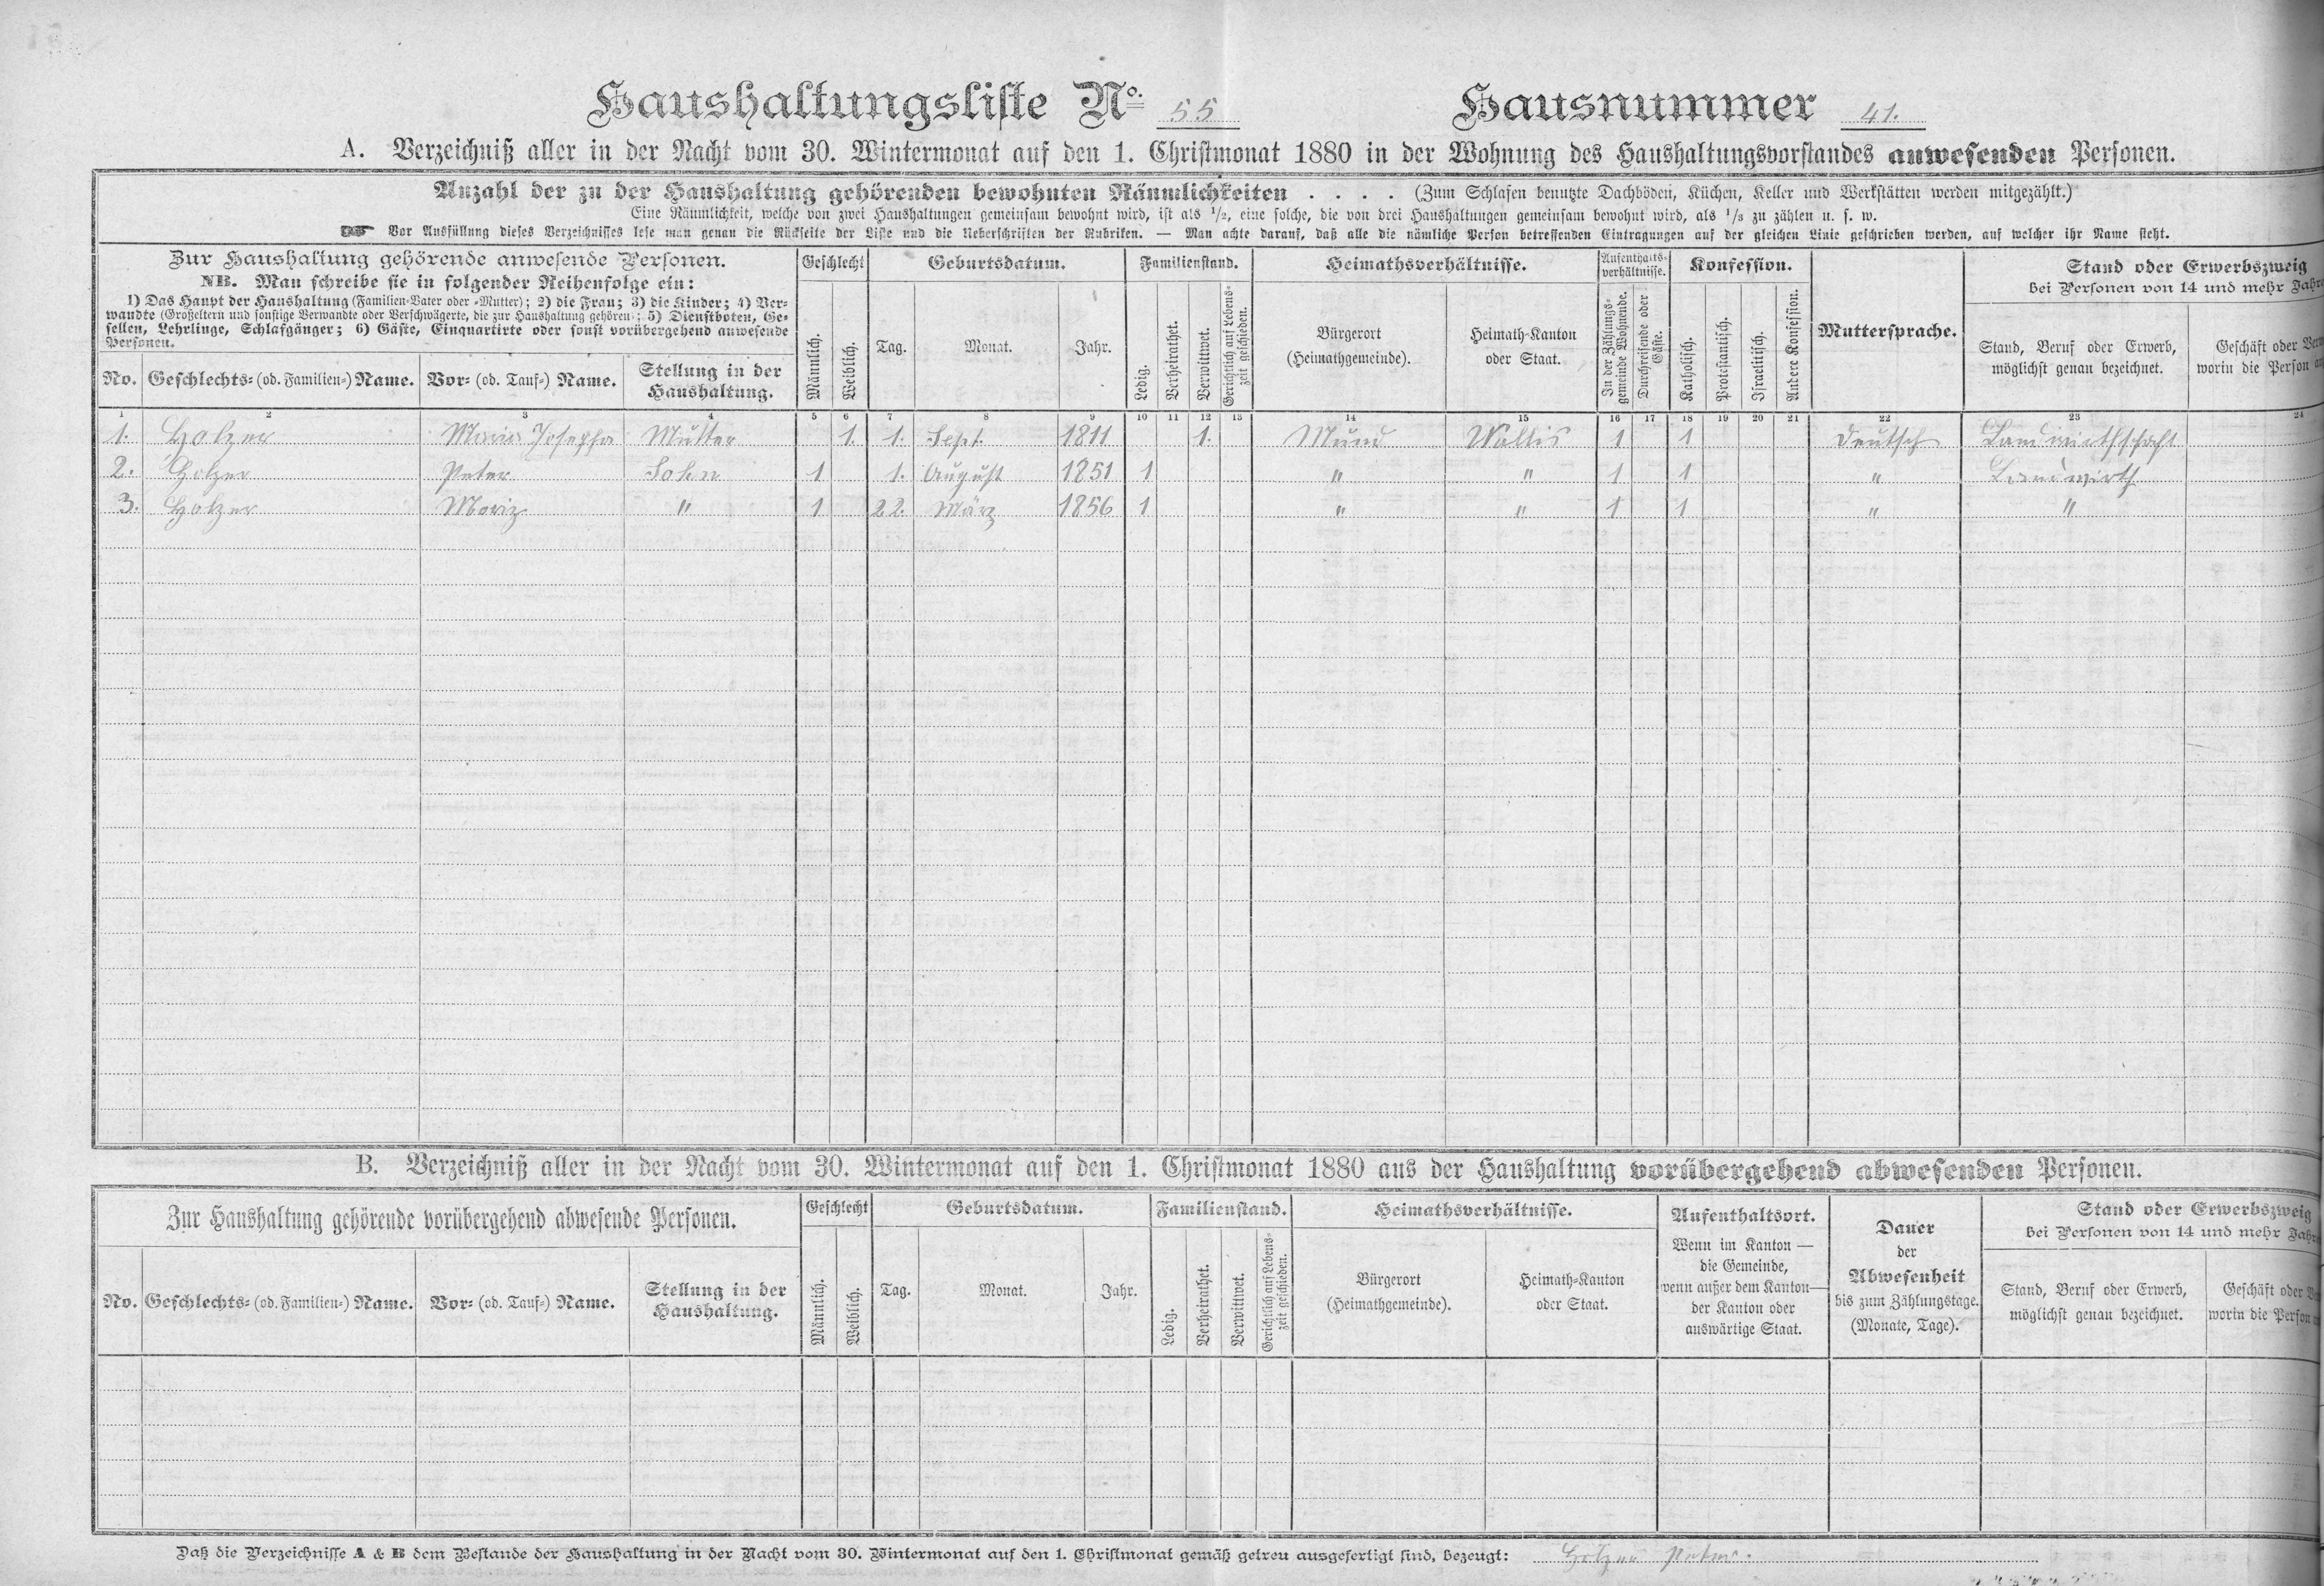 Haushaltungsliste No. 55 Hausnummer 41.
A. Verzeichniß aller in der Nacht vom 30. Wintermonat auf den 1. Christmonat 1880 in der Wohnung des Haushaltungsvorstandes anwesenden Personen.
Anzahl der zu der Haushaltung gehörenden bewohnten Räumlichkeiten . . . . (Zum Schlafen benutzte Dachböden, Küchen, Keller und Werkstätten werden mitgezählt.)
Eine Räumlichkeit, welche von zwei Haushaltungen gemeinsam bewohnt wird, ist als 1/2, eine solche, die von drei Haushaltungen gemeinsam bewohnt wird, als 1/3 zu zählen u. s. w.
Vor Ausfüllung dieses Verzeichnisses lese man genau die Rückseite der Liste und die Ueberschriften der Rubriken. — Man achte darauf, daß alle die nämliche Person betreffenden Eintragungen auf der gleichen Linie geschrieben werden, auf welcher ihr Name steht.
Zur Haushaltung gehörende anwesende Personen.
NB. Man schreibe sie in folgender Reihenfolge ein:
1) Das Haupt der Haushaltung (Familien-Vater oder -Mutter); 2) die Frau; 3) die Kinder; 4) Ver-
wandte (Großeltern und sonstige Verwandte oder Verschwägerte, die zur Haushaltung gehören); 5) Dienstboten, Ge-
sellen, Lehrlinge, Schlafgänger; 6) Gäste, Einquartirte oder sonst vorübergehend anwesende
Personen.
No. Geschlechts- (od. Familien-) Name. Vor- (od. Tauf-) Name. Stellung in der
Haushaltung.
Geschlecht
Männlich. Weiblich.
Geburtsdatum.
Tag. Monat. Jahr.
Familienstand.
Ledig. Verheirathet. Verwittwet. Gerichtlich auf Lebens-
zeit geschieden.
Heimathsverhältnisse.
Bürgerort
(Heimathgemeinde).
Heimath-Kanton
oder Staat.
Aufenthalts-
verhältnisse.
In der Zählungs-
gemeinde Wohnende.
Durchreisende oder
Gäste.
Konfession.
Katholisch. Protestantisch. Israelitisch. Andere Konfession.
Muttersprache.
Stand oder Erwerbszweig
bei Personen von 14 und mehr
Stand, Beruf oder Erwerb,
möglichst genau bezeichnet.
Geschäft oder
worin die Person
1 2 3 4 5 6 7 8 9 10 11 12 13 14 15 16 17 18 19 20 21 22 23 24
1. Holzer Maria Josepha Mutter 1. 1. Sept. 1811 1. Mund Wallis 1 1 Deutsch Landwirthschaft
2. Holzer Peter Sohn 1 1. August 1851 1 " " 1 1 " Landwirth
3. Holzer Moriz " 1 22. März 1856 1 " " 1 1 " "
B. Verzeichniß aller in der Nacht vom 30. Wintermonat auf den 1. Christmonat 1880 aus der Haushaltung vorübergehend abwesenden Personen.
Zur Haushaltung gehörende vorübergehend abwesende Personen.
No. Geschlechts- (od. Familien-) Name. Vor- (od. Tauf-) Name. Stellung in der
Haushaltung.
Geschlecht
Männlich. Weiblich.
Geburtsdatum.
Tag. Monat. Jahr.
Familienstand.
Ledig. Verheirathet. Verwittwet. Gerichtlich auf Lebens-
zeit geschieden.
Heimathsverhältnisse.
Bürgerort
(Heimathgemeinde).
Heimath-Kanton
oder Staat.
Aufenthaltsort.
Wenn im Kanton —
die Gemeinde,
wenn außer dem Kanton —
der Kanton oder
auswärtige Staat.
Dauer
der
Abwesenheit
bis zum Zählungstage.
(Monate, Tage).
Stand oder Erwerbszweig
bei Personen von 14 und mehr
Stand, Beruf oder Erwerb,
möglichst genau bezeichnet.
Geschäft oder
worin die Person
Daß die Verzeichnisse A & B dem Bestande der Haushaltung in der Nacht vom 30. Wintermonat auf den 1. Christmonat gemäß getreu ausgefertigt sind, bezeugt: Holzer Peter.